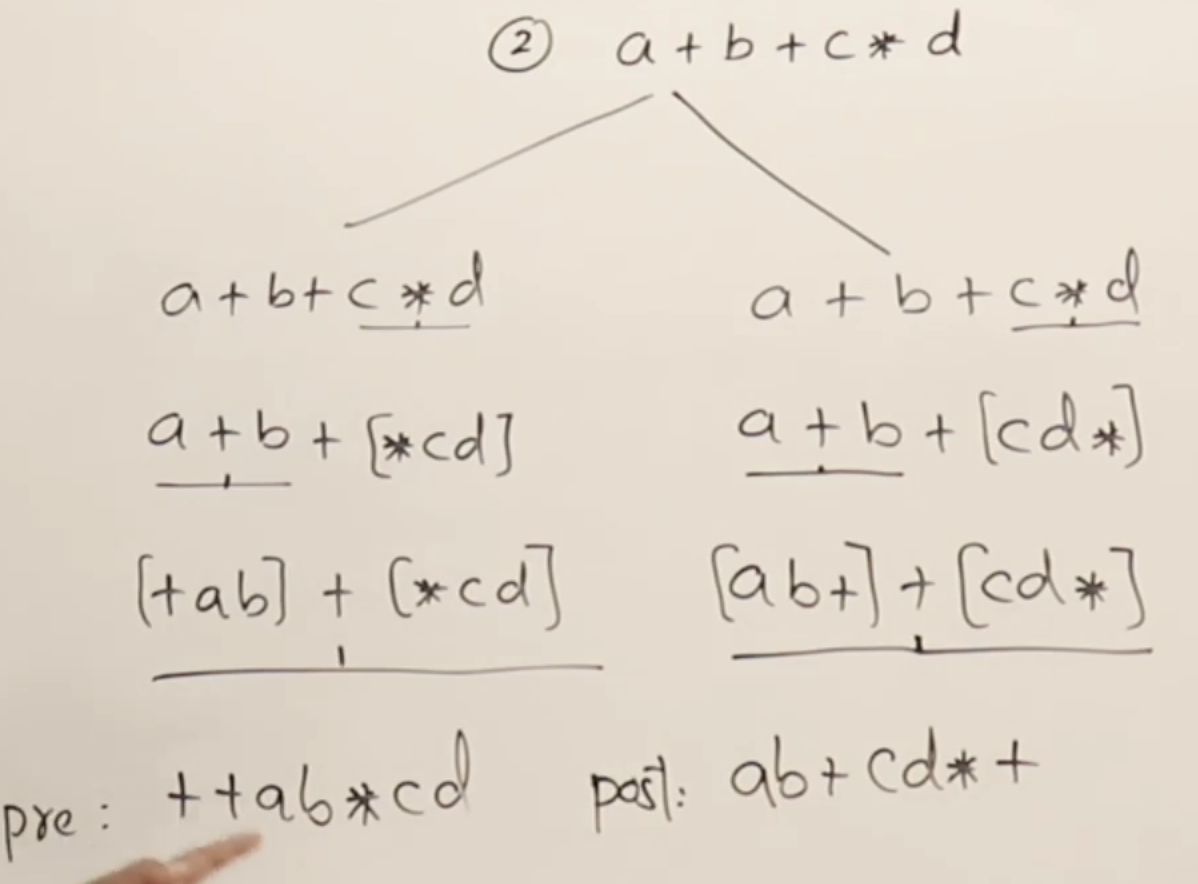 ② a + b + c * d
a + b + c * d
a + b + [*cd]
[+ab] + [*cd]
pre : ++ab*cd
a + b + c * d
a + b + [cd*]
[ab+] + [cd*]
post: ab+cd*+